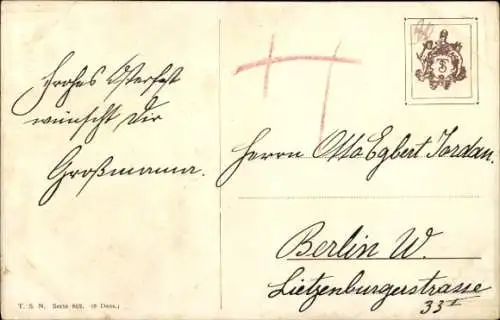 Frohes Osterfest
wünscht Dir
Großmama.
Herrn Otto Egbert Jordan.
Berlin W.
Lietzenburgerstrasse
33 I
T. S. N. Serie 862. (6 Dess.)